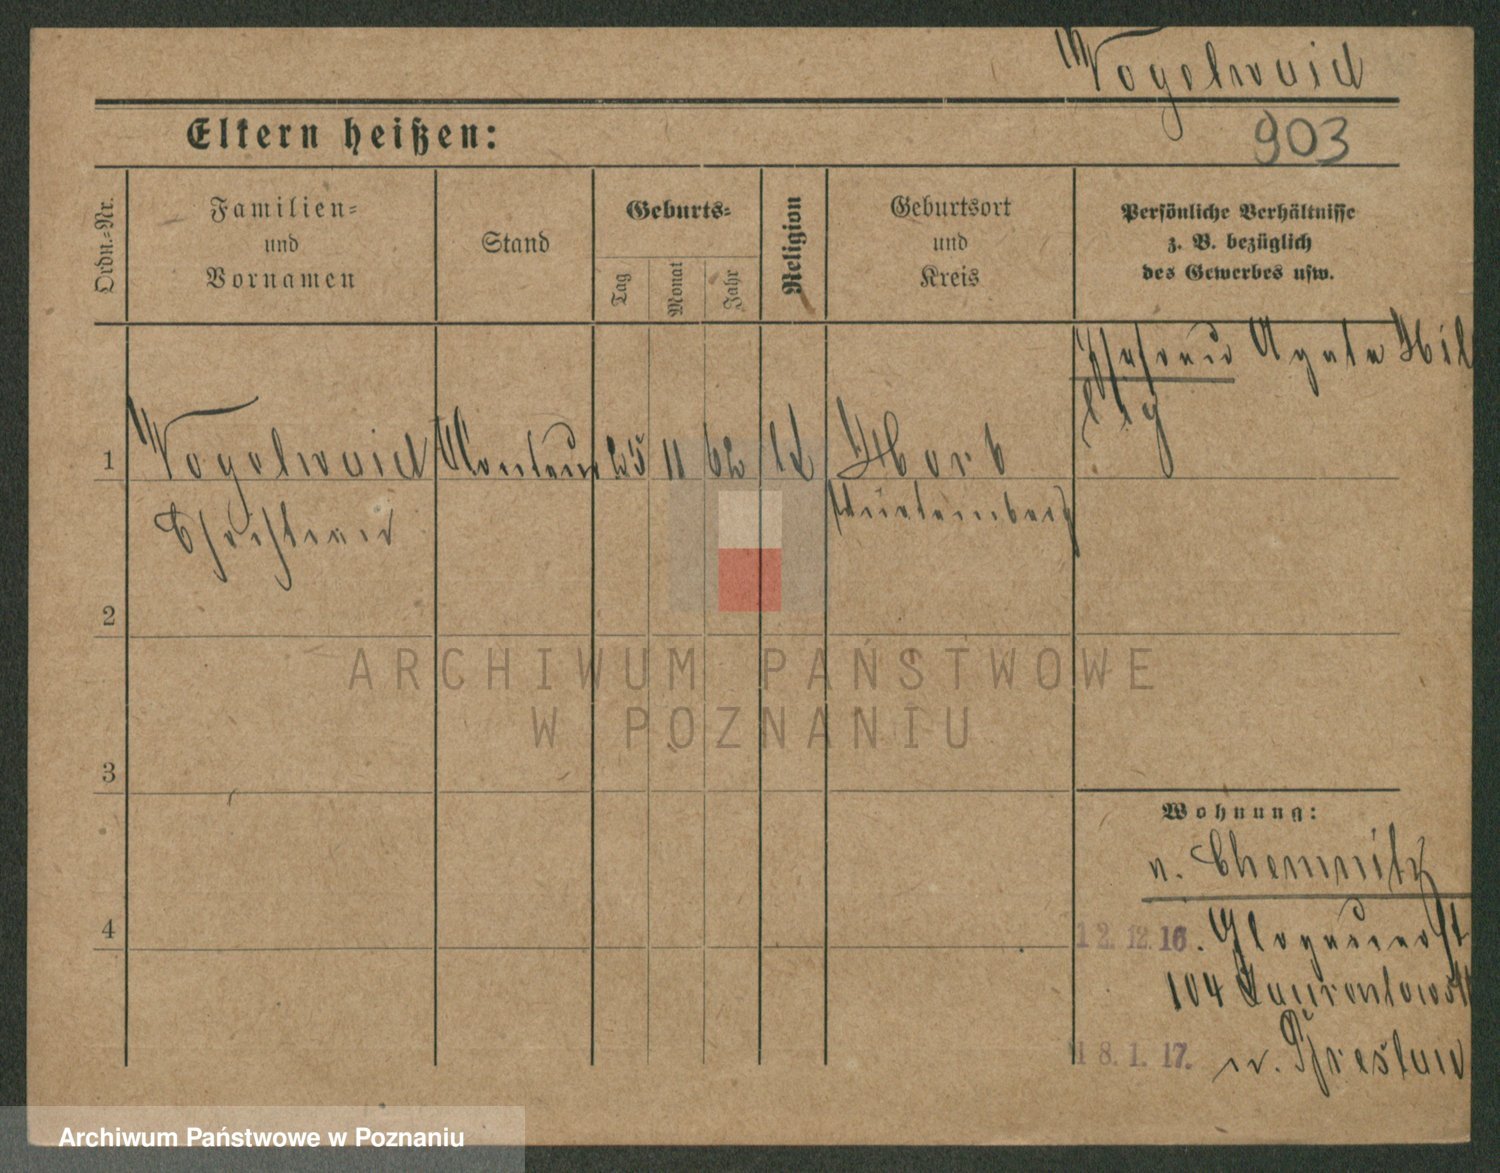 Vogelwaid
Eltern heißen:
903
Ordn.-Nr.
Familien-
und
Vornamen
Stand
Geburts-
Tag
Monat
Jahr
Religion
Geburtsort
und
Kreis
Persönliche Verhältnisse
z. B. bezüglich
des Gewerbes usw.
Ehefrau Agate Hil
1
Vogelwaid
Monteur
25
11
62
Horb
Christian
Würtemberg
2
ARCHIWUM PAŃSTWOWE
W POZNANIU
3
Wohnung:
v. Chemnitz
4
12. 12. 16. Glogauerst
104
18. 1. 17. n. Breslau
Archiwum Państwowe w Poznaniu